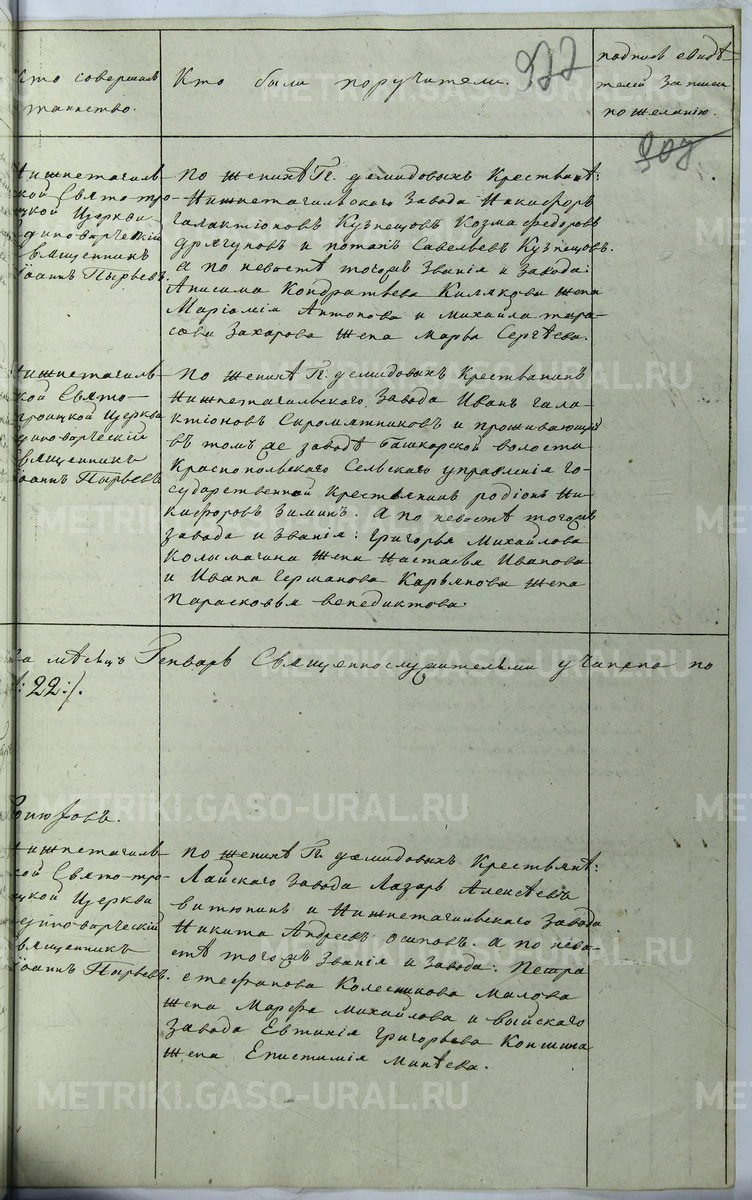 Кто совершалъ
таинство.
Кто были поручители.
977
подпись свидѣ-
телей записи
по желанію.
907
Нижнетагиль-
ской Свято Тро-
ицкой Церкви
Единоверческій
Священникъ
Іоаннъ Пырьевъ.
По женихѣ Гг. Демидовыхъ Крестьянѣ:
Нижнетагильскаго Завода Никифоръ
Галактіоновъ Кузнецовъ Козма Федоровъ
Дрягуновъ и Потапъ Савельевъ Кузнецовъ.
а по невѣстѣ тогожъ Званія и Завода:
Анисима Кондратьева Килякова жена
Маріамія Антонова и Михайла Тара-
сова Захарова жена Марья Сергѣева.
Нижнетагиль-
ской Свято-
Троицкой Церкви
Единоверческій
Священникъ
Іоаннъ Пырьевъ
По женихѣ Гг. Демидовыхъ Крестьянинъ
Нижнетагильскаго Завода Иванъ Гала-
ктіоновъ Сыромятниковъ и проживающій
въ томъ же заводѣ Башкарской волости
Краснопольскаго Сельскаго управленія Го-
сударственной Крестьянинъ Родіонъ Ни-
кифоровъ Зиминъ. А по невѣстѣ тогожъ
завода и Званія: Григорья Михайлова
Колмагина жена Настасья Иванова
и Ивана Германова Карьянова жена
Парасковья Венедиктова.
за мѣсяцъ Генварь Священнослужительми учинена по
22:/.
METRIKI.GASO-URAL.RU
Нижнетагиль-
ской Свято-Тро-
ицкой Церкви
Единоверческій
Священникъ
Іоаннъ Пырьевъ.
По женихѣ Гг. Демидовыхъ Крестьянѣ:
Лайскаго Завода Лазарь Алексѣевъ
Витюнинъ и Нижнетагильскаго Завода
Никита Андреевъ Осиповъ. а по невѣ-
стѣ тогожъ Званія и Завода: Петра
Стефанова Колесникова Малова
жена Марфа Михайлова и Выйскаго
Завода Евтихія Григорьева Коншина
жена Епистимія Минѣева.
METRIKI.GASO-URAL.RU